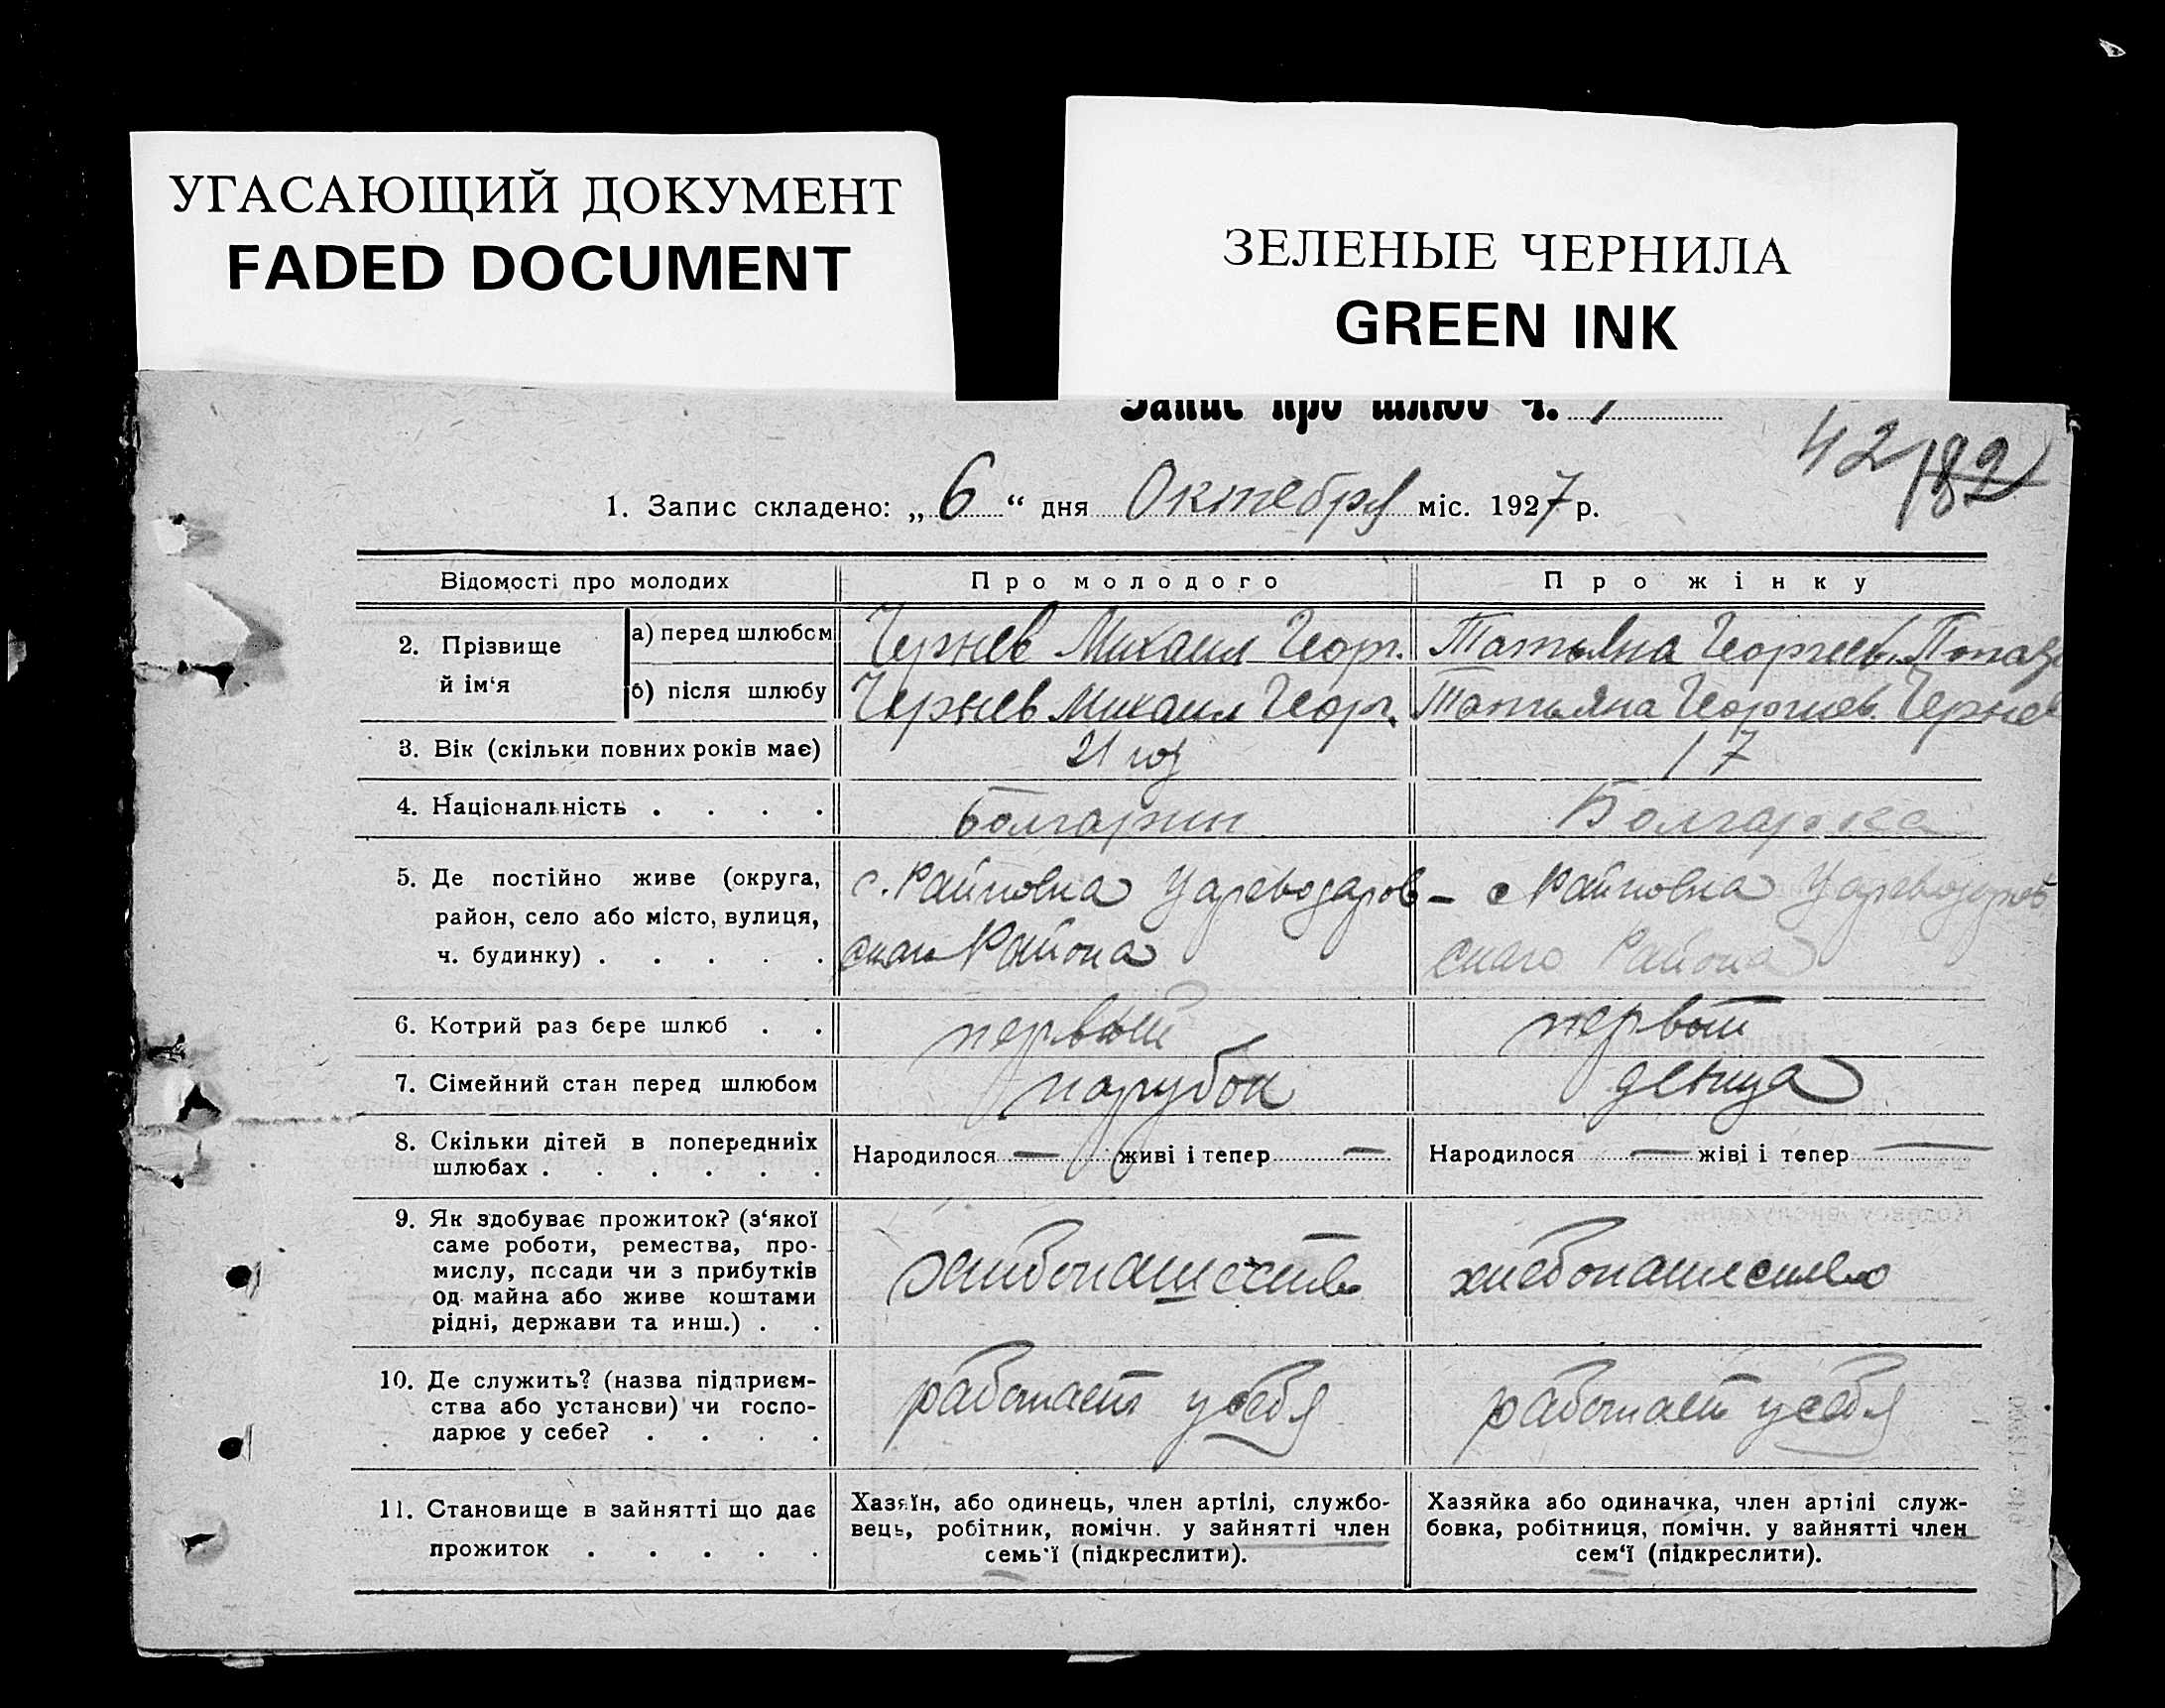 УГАСАЮЩИЙ ДОКУМЕНТ
FADED DOCUMENT
ЗЕЛЕНЫЕ ЧЕРНИЛА
GREEN INK
Запис про шлюб ч.
42 182
1. Запис складено: „6“ дня Октебря міс. 1927 р.
Відомості про молодих Про молодого Про жінку
2. Прізвище й ім‘я
а) перед шлюбом Чернев Михаил Георг. Татьяна Георгиев.
б) після шлюбу Чернев Михаил Георг. Татьяна Георгиев. Чернев
3. Вік (скільки повних років має) 21 год 17
4. Національність . . . . Болгарин Болгарка
5. Де постійно живе (округа, с. Райновка Цареводаров- с Райновка Цареводаров
район, село або місто, вулиця,
ч. будинку) . . . . . скаго Района скаго Района
6. Котрий раз бере шлюб . . первый первый
7. Сімейний стан перед шлюбом парубок девица
8. Скільки дітей в попередниіх Народилося — живі і тепер — Народилося — жіві і тепер —
шлюбах . . . . . .
9. Як здобуває прожиток? (з‘якої
саме роботи, ремества, про-
мислу, посади чи з прибутків хлебопашество хлебопашество
од майна або живе коштами
рідні, держави та инш.) . .
10. Де служить? (назва підприєм-
ства або установи) чи госпо- работает у себя работает у себя
дарює у себе? . . . .
11. Становище в зайнятті що дає
прожиток . . . . .
Хазяїн, або одинець, член артілі, службо-
вець, робітник, помічн. у зайнятті член
семь‘ї (підкреслити).
Хазяйка або одиначка, член артілі служ-
бовка, робітниця, помічн. у зайнятті член
сем‘ї (підкреслити).